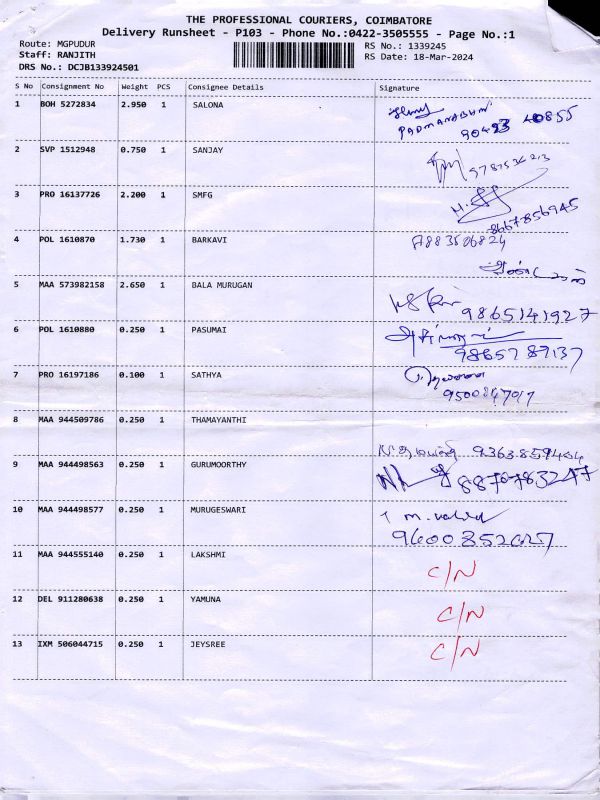 THE PROFESSIONAL COURIERS, COIMBATORE
Delivery Runsheet - P103 - Phone No.:0422-3505555 - Page No.:1
Route: MGPUDUR
Staff: RANJITH
DRS No.: DCJB133924501
RS No.: 1339245
RS Date: 18-Mar-2024
S No Consignment No Weight PCS Consignee Details Signature
1 BOH 5272834 2.950 1 SALONA
PADMANABHAN
90423 40855
2 SVP 1512948 0.750 1 SANJAY
3 PRO 16137726 2.200 1 SMFG
8667856945
4 POL 1610870 1.730 1 BARKAVI
5 MAA 573982158 2.650 1 BALA MURUGAN
9865141927
6 POL 1610880 0.250 1 PASUMAI
9865787137
7 PRO 16197186 0.100 1 SATHYA
8 MAA 944509786 0.250 1 THAMAYANTHI
9363859404
9 MAA 944498563 0.250 1 GURUMOORTHY
8870783247
10 MAA 944498577 0.250 1 MURUGESWARI
11 MAA 944555140 0.250 1 LAKSHMI C/N
12 DEL 911280638 0.250 1 YAMUNA C/N
13 IXM 506044715 0.250 1 JEYSREE C/N